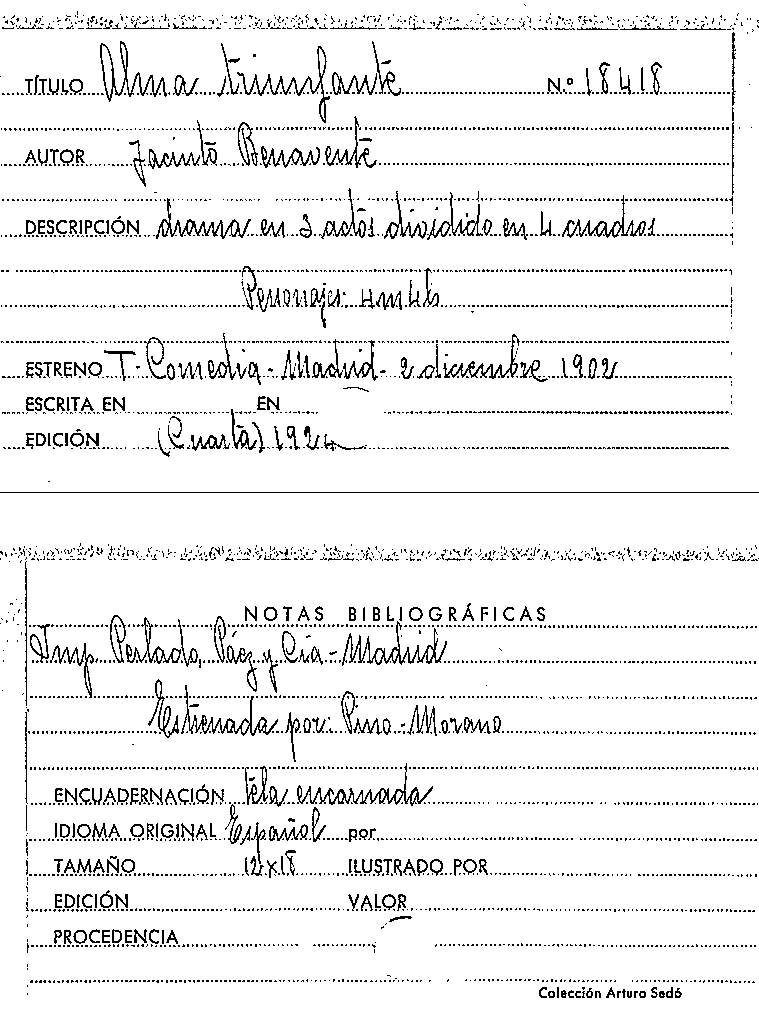 TÍTULO Alma triunfante N.º 18418
AUTOR Jacinto Benavente
DESCRIPCIÓN drama en 3 actos dividido en 4 cuadros
Personajes: 4m 4h
ESTRENO T. Comedia - Madrid - 2 diciembre 1902
ESCRITA EN EN
EDICIÓN (Cuarta) 1924
NOTAS BIBLIOGRÁFICAS
Imp. Perlado, Páez y Cía - Madrid
Estrenada por: Pino - Morano
ENCUADERNACIÓN tela encarnada
IDIOMA ORIGINAL Español por
TAMAÑO 12x18 ILUSTRADO POR
EDICIÓN VALOR
PROCEDENCIA
Colección Arturo Sedó